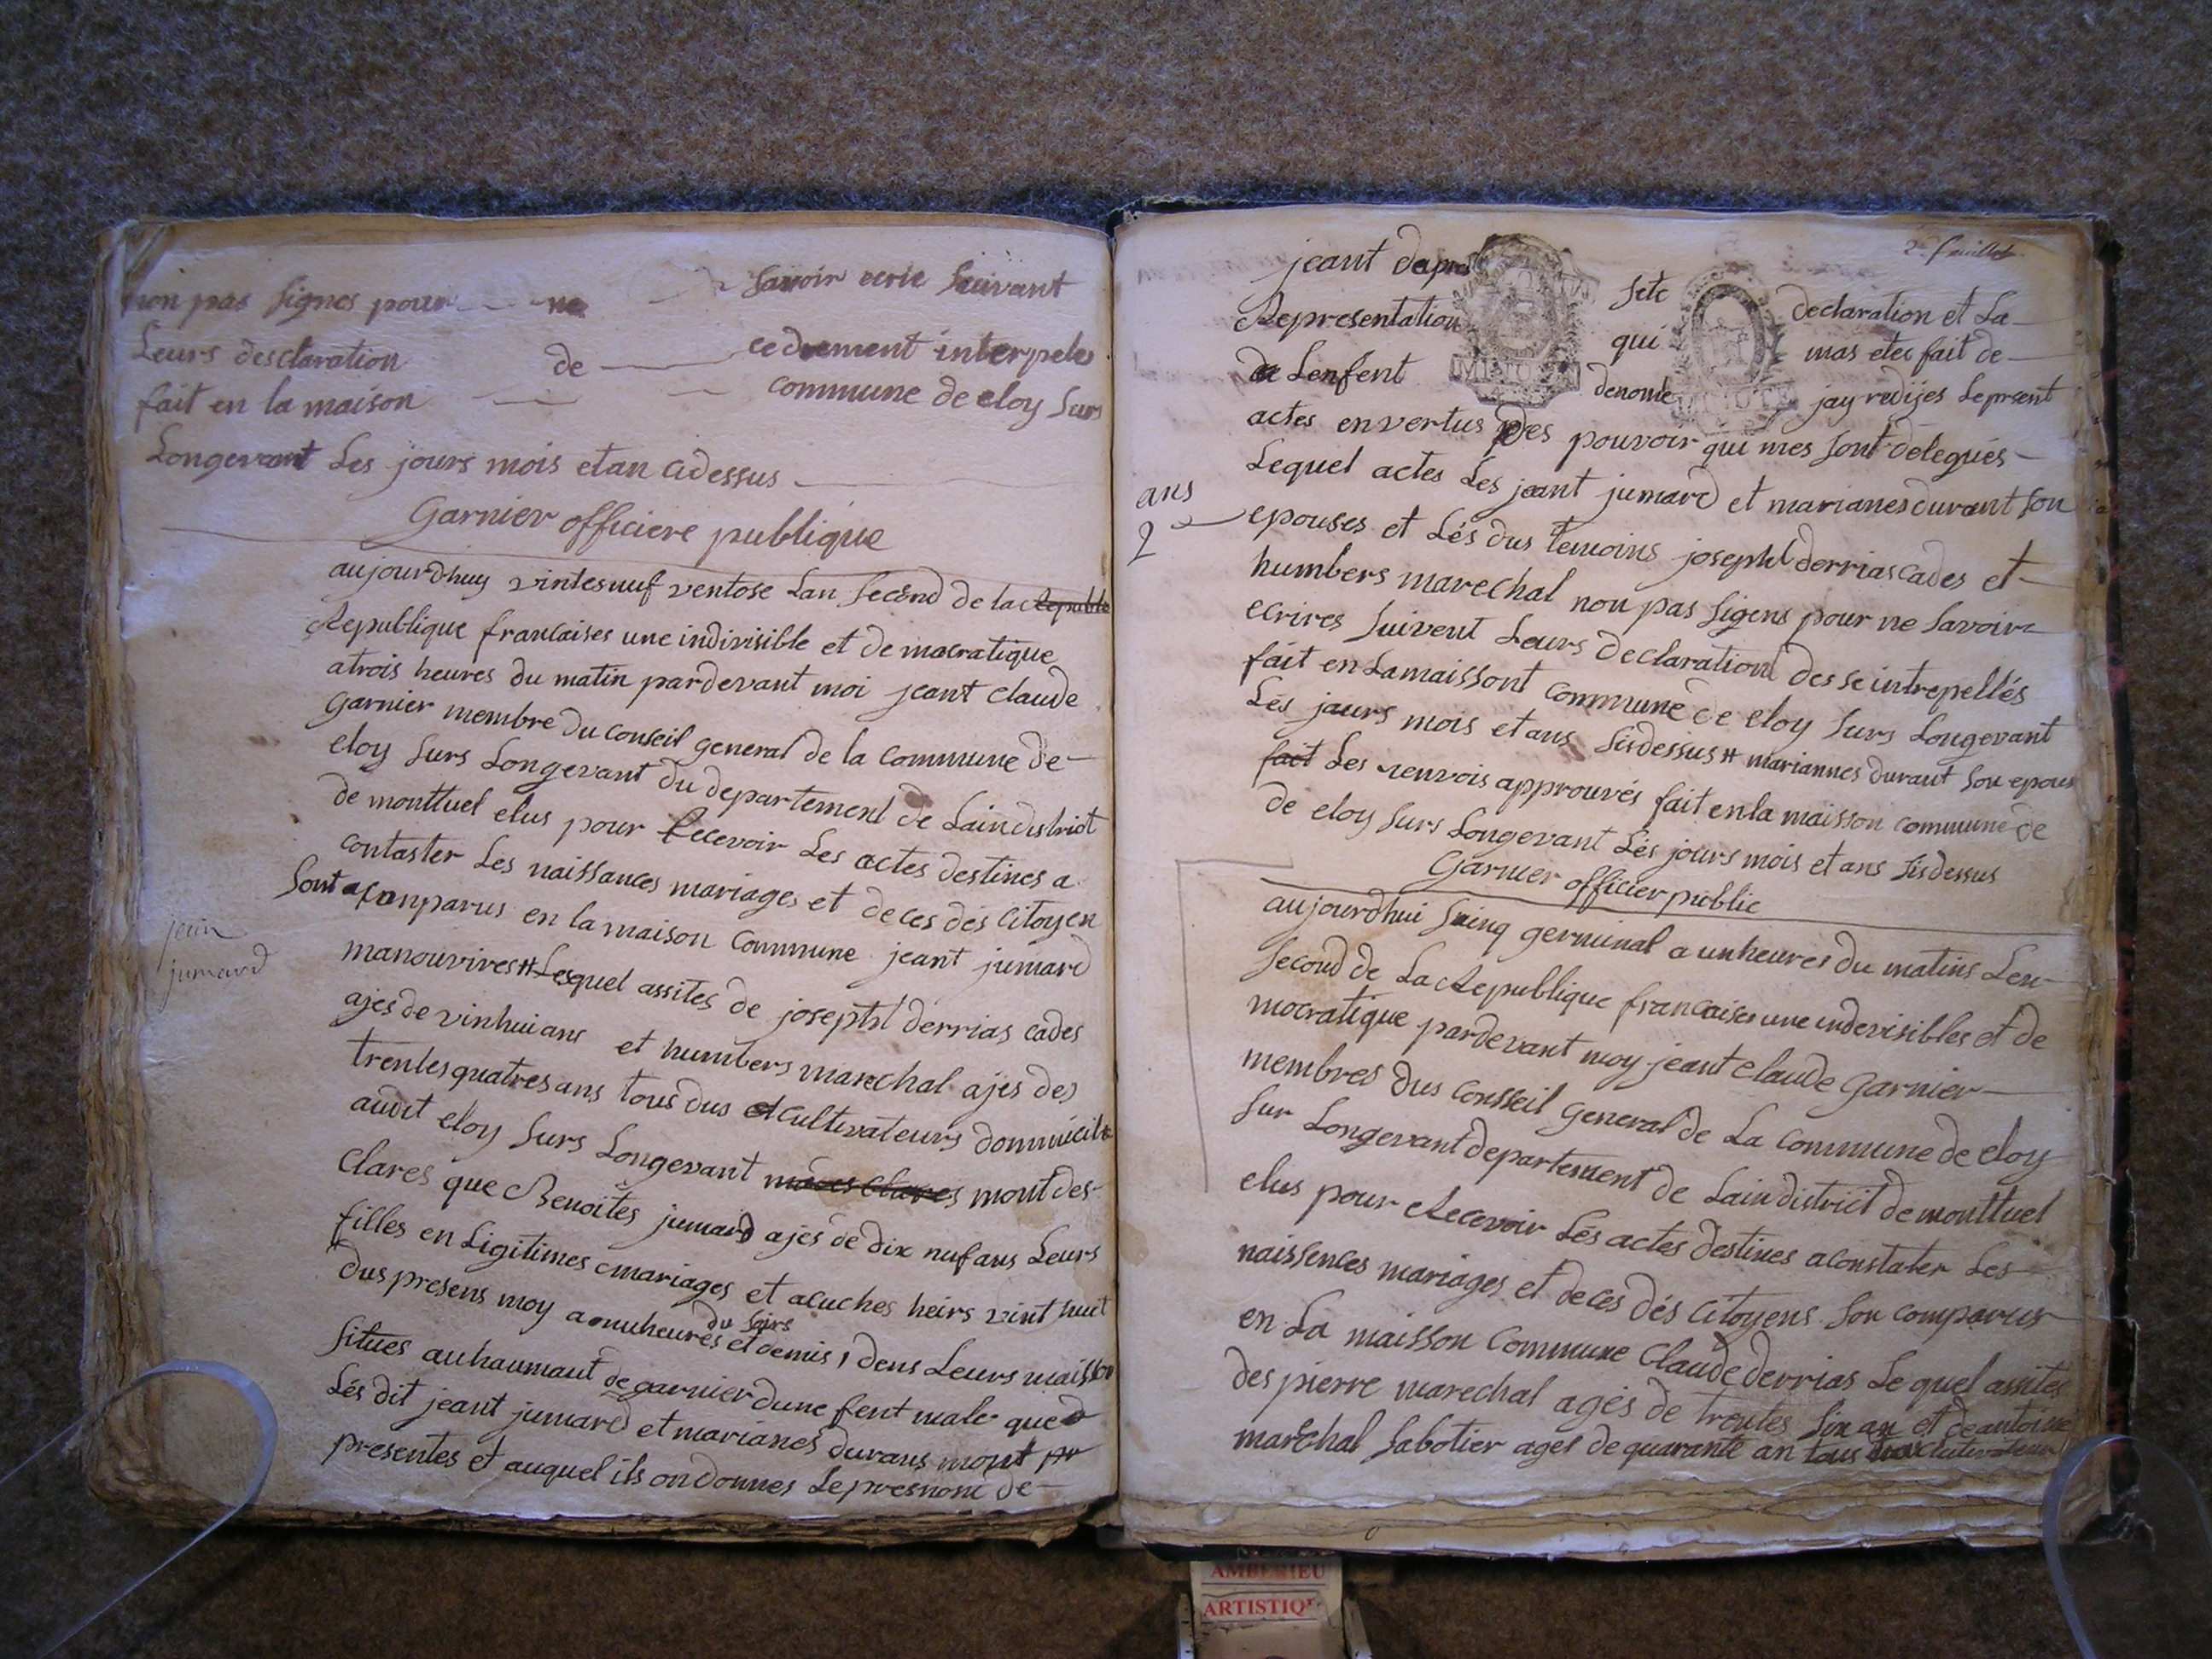 non pas signes pour ne savoir ecrie suivant
Leurs desclaration de ce drement interpeles
fait en la maison commune de eloy surs
Longevant Les jours mois et an cidessus
Garnier officiere publique
aujourdhuy vintesneuf ventose Lan second de la Republi
Republique francaises une indivisible et de macratique
atrois heures du matin pardevant moi jeant claude
garnier membre du conseil general de la commune de
eloy surs Longevant du departement de Lain district
de montluel elus pour Recevoir Les actes destines a
contaster Les naissances mariages et de ces des citoyen
sont aconparus en la maison commune jeant jumard
jean
jumard
manouvires # Lesquel assites de josepht derrias cades
ajes de vinhui ans et humbers marechal ajes des
trentes quatres ans tous dus et cultivateurs dommicile
audit eloy surs Longevant mont des
clares que Benoites jumard ajes de dix nuf ans Leurs
filles en Ligitimes mariages et acuches heirs vint huit
dus presens moy a onuheures et demis, dens Leurs maisson
du soirs
situes au haumaut de garnier dune fent male que
Lés dit jeant jumard et marianes durans mont
presentes et auquel ils on donnes Le presnom de
2e feuillet
jeant dapres sete declaration et La
Representation qui mas etes fait de
de Lenfent denome jay redijes Le present
MINUTE
MINUTE
actes en vertus des pouvoir qui mes sont delegués
Lequel actes Les jeant jumard et marianes durant son
ans
2
epouses et Lés dus temoins josepht derrias cades et
humbers marechal non pas sigens pour ne savoir
ecrires suivent Leurs declaration des se intrepellés
fait en Lamaissont commune de eloy surs Longevant
Lés jours mois et ans sisdessus # mariannes durant son epous
fait Les renvois approuvés fait en la maisson commune de
de eloy surs Longevant Lés jours mois et ans sisdessus
Garnier officier public
aujourdhui sainq germinal a unheures du matins Len
second de La Republique francaises une indevisibles et de
mocratique pardevant moy jeant claude garnier
membres dus consseil general de La commune de eloy
sur Longevant departement de Lain district de montluel
elus pour Recevoir Lés actes destines aconstater Les
naissences mariages et deces dés citoyens son comparus
en La maisson commune claude derrias Le quel assites
des pierre marechal agés de trentes six an et de antoine
marechal sabotier ages de quarante an tous
AMBERIEU
ARTISTIQU